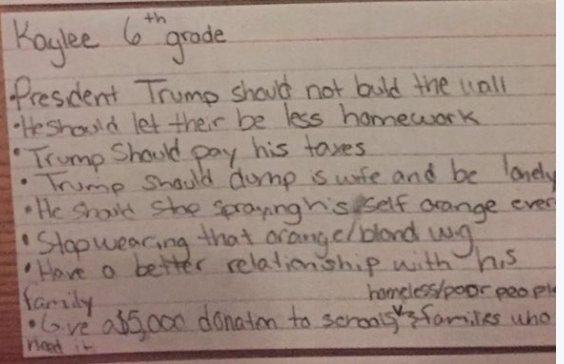 Kaylee 6th grade
•President Trump should not buld the wall
•He should let their be less homework
•Trump Should pay his taxes
•Trump should dump is wife and be lonely
•He should stop spraying his self orange ever
•Stop wearing that orange/blond wig
•Have a better relationship with his
family
homeless/poor people
•Give a $5,000 donation to schools & families who
need it